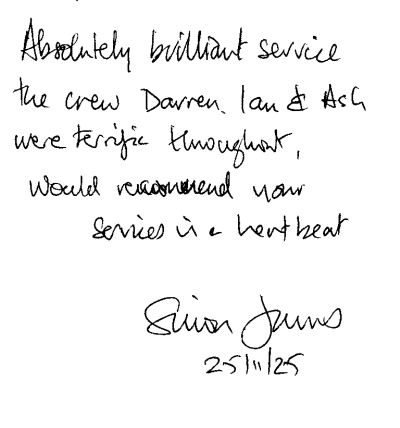 Absolutely brilliant service
the crew Darren, Ian & Ash
were terrific throughout,
Would recommend your
services in a heartbeat
Simon James
25/11/25